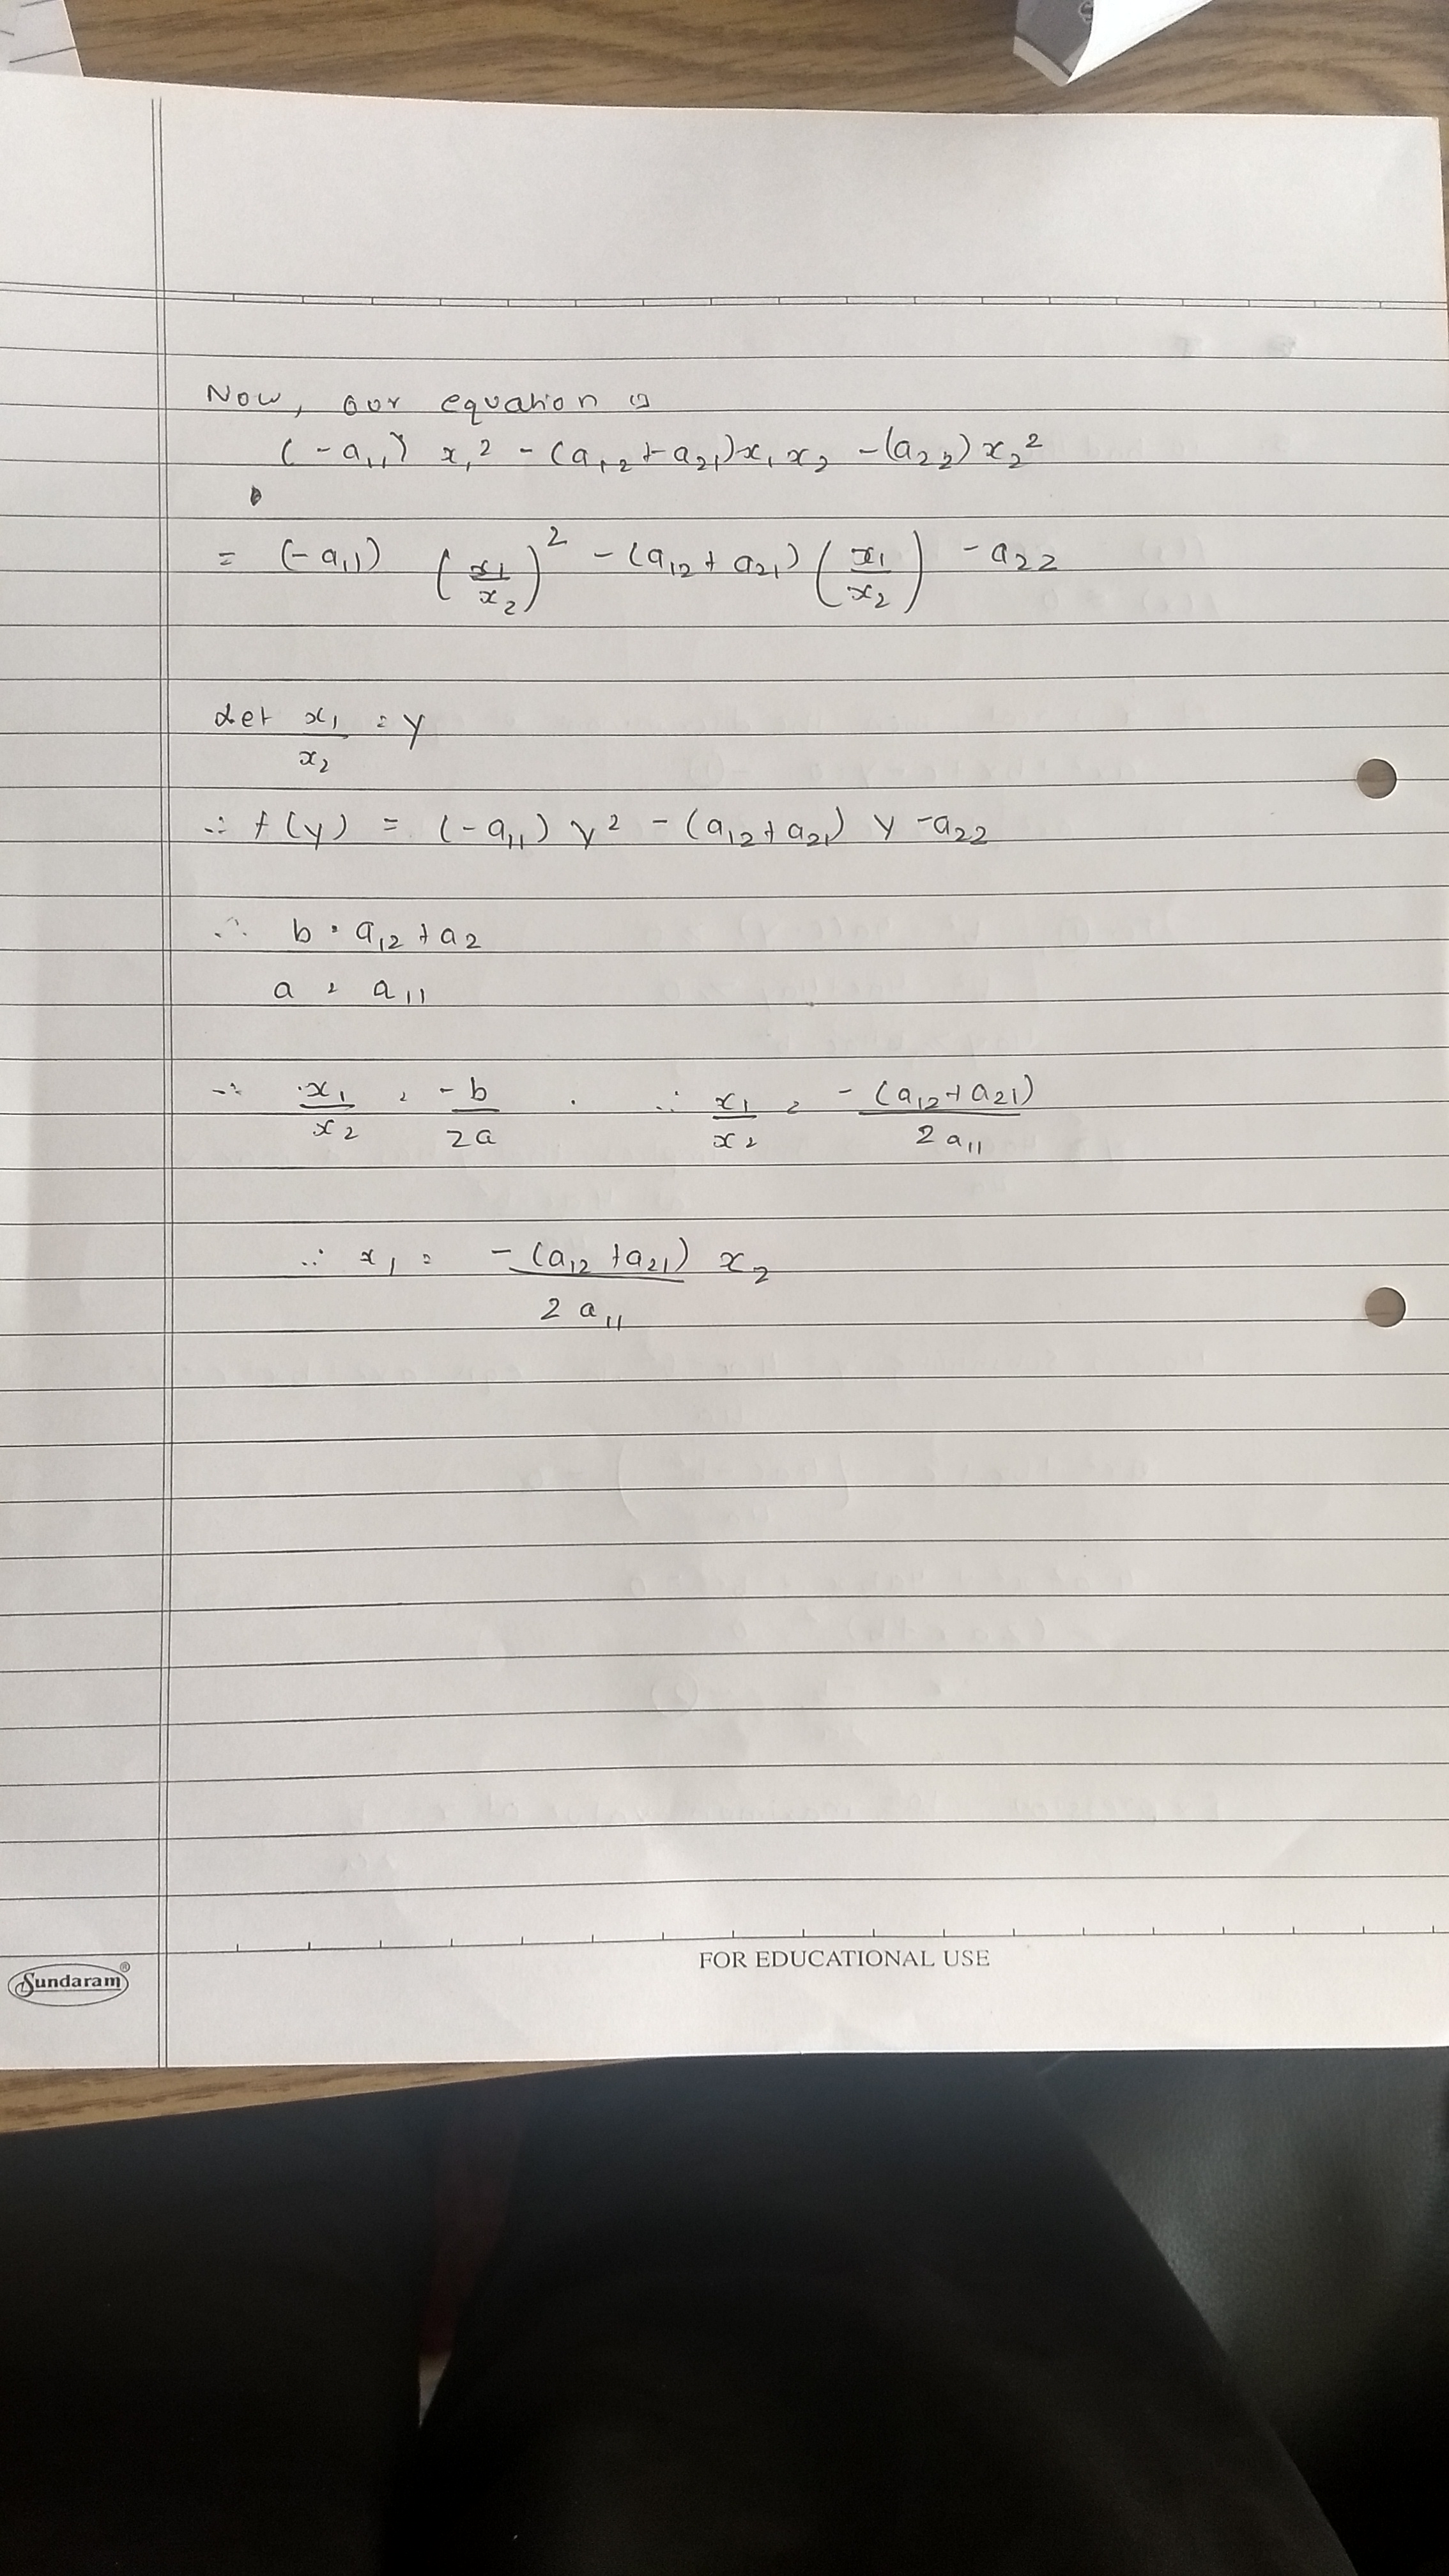 Now, our equation is
(-a₁₁) x₁² - (a₁₂ + a₂₁)x₁x₂ - (a₂₂) x₂²
= (-a₁₁) (x₁/x₂)² - (a₁₂ + a₂₁) (x₁/x₂) - a₂₂
Let x₁/x₂ = y
∴ f(y) = (-a₁₁) y² - (a₁₂ + a₂₁) y - a₂₂
∴ b = a₁₂ + a₂
a = a₁₁
∴ x₁/x₂ = -b/2a . ∴ x₁/x₂ = -(a₁₂ + a₂₁)/2a₁₁
∴ x₁ = -(a₁₂ + a₂₁)/2a₁₁ x₂
FOR EDUCATIONAL USE
Sundaram®